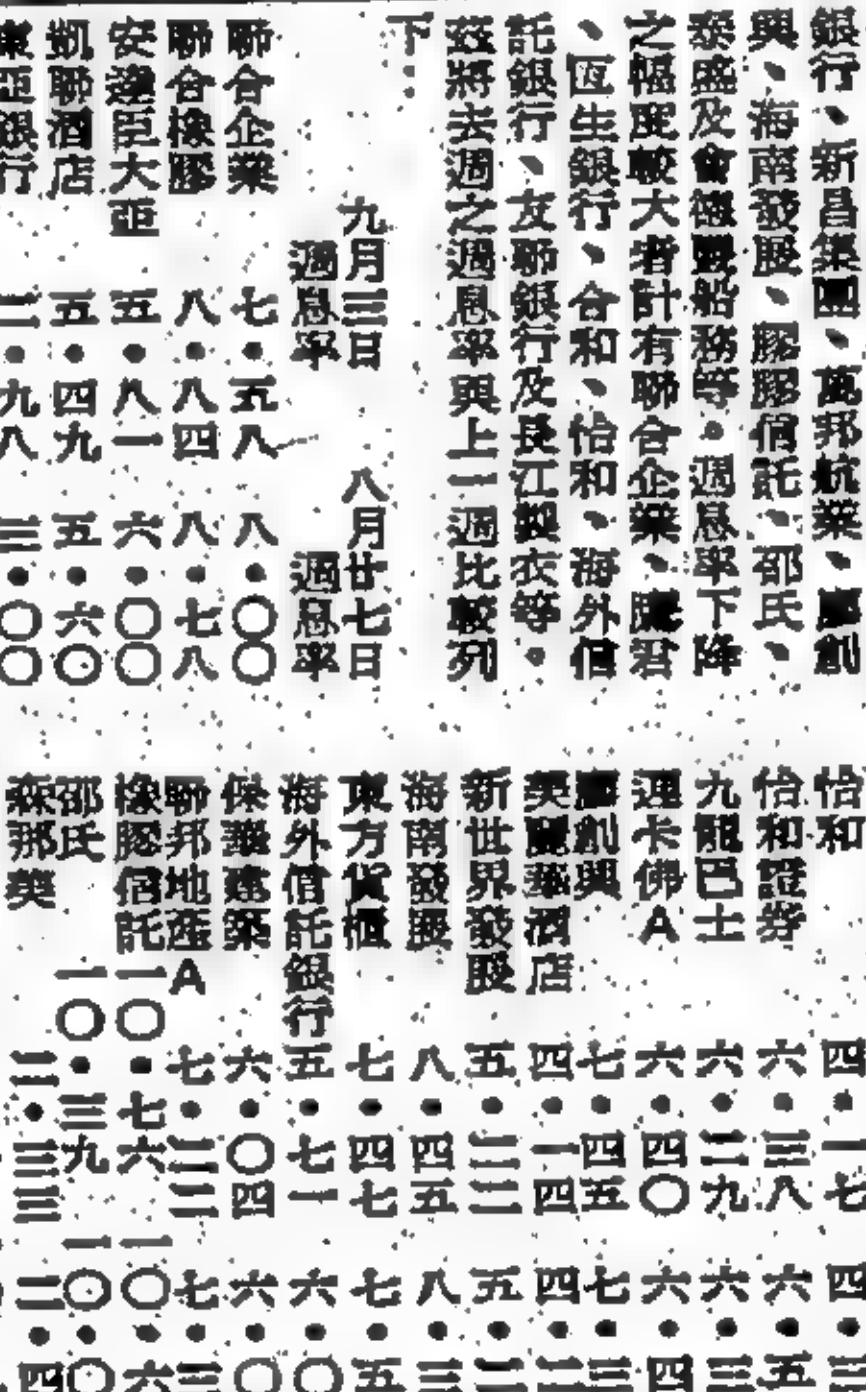 銀行、新昌集團、萬邦航業、廖創
興、海南發展、橡膠信託、邵氏、
泰盛及會德豐船務等。週息率下降
之幅度較大者計有聯合企業、鷹君
、恆生銀行、合和、怡和、海外信
託銀行、友聯銀行及長江製衣等。
茲將去週之週息率與上一週比較列
下:
九月三日 八月廿七日
週息率 週息率
聯合企業 七・五八 八・〇〇
聯合橡膠 八・八四 八・七八
安達臣大亞 五・八一 六・〇〇
凱聯酒店 五・四九 五・六〇
東亞銀行 二・九八 三・〇〇
怡和 四・一七 四・三
怡和證券 六・三八 六・五
九龍巴士 六・二九 六・三
連卡佛A 六・四〇 六・四
廖創興 七・四五 七・三
美麗華酒店 四・一四 四・二
新世界發展 五・二二 五・二
海南發展 八・四五 八・三
東方貨櫃 七・四七 七・五
海外信託銀行 五・七一 六・〇
保華建築 六・〇四 六・〇
聯邦地產A 七・二二 七・三
橡膠信託 一〇・七六 一〇・六
邵氏 一〇・三九 一〇・〇
森那美 二・三三 二・四